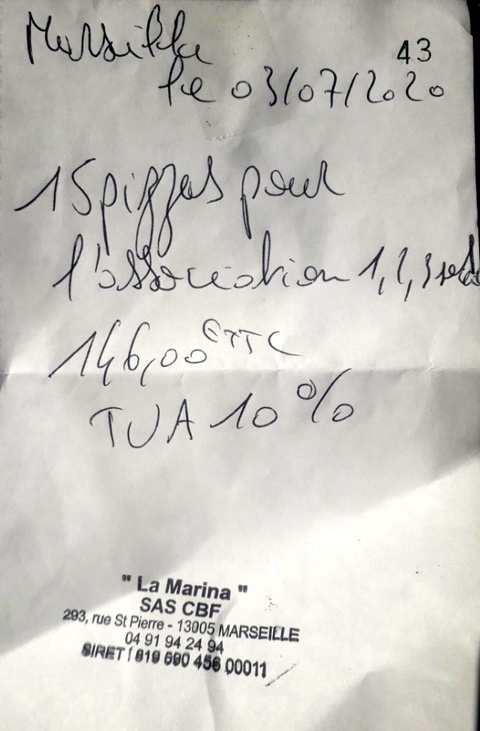 Marseille
43
le 03/07/2020
15 pizzas pour
l'association 1, 2, 3
146,00 € TTC
TVA 10 %
" La Marina "
SAS CBF
293, rue St Pierre - 13005 MARSEILLE
04 91 94 24 94
SIRET 00011